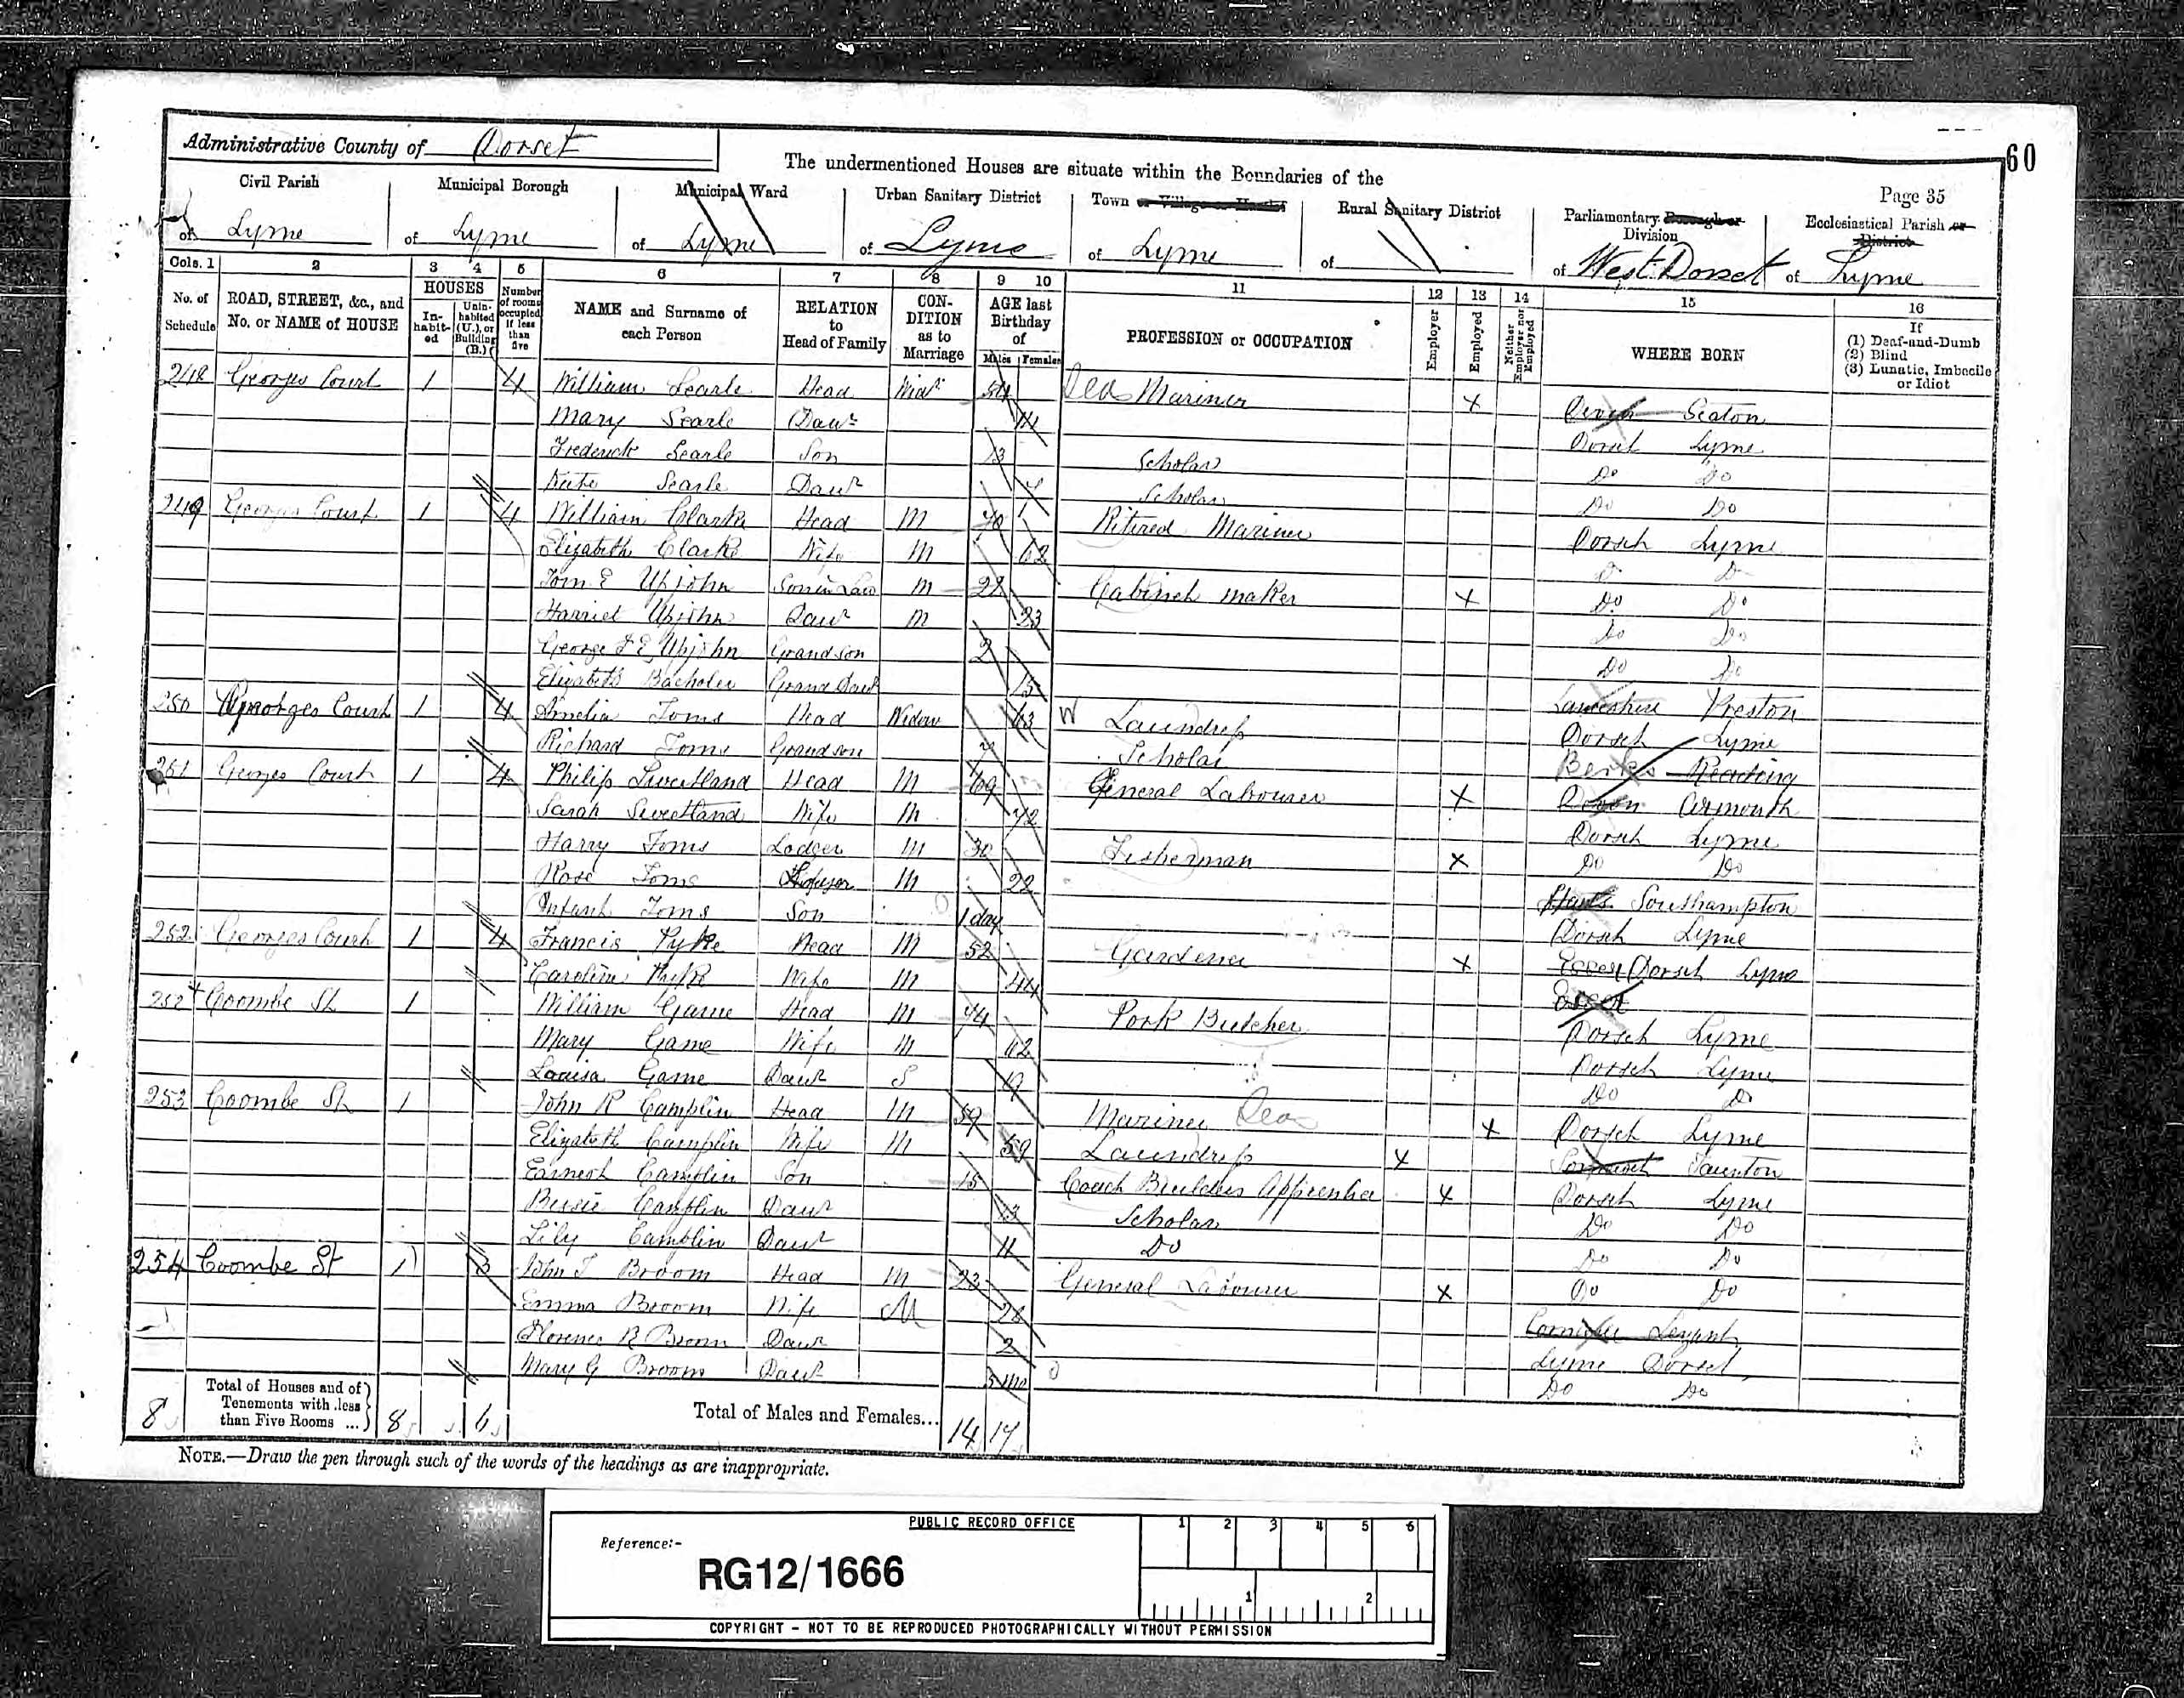 60
Administrative County of Dorset
The undermentioned Houses are situate within the Boundaries of the
Page 35
Civil Parish of Lyme
Municipal Borough of Lyme
Municipal Ward of Lyme
Urban Sanitary District of Lyme
Town or Village or Hamlet of Lyme
Rural Sanitary District of
Parliamentary Borough or Division of West Dorset
Ecclesiastical Parish or District of Lyme
Cols. 1 2 3 4 5 6 7 8 9 10 11 12 13 14 15 16
No. of Schedule
ROAD, STREET, &c., and No. or NAME of HOUSE
HOUSES
In-habit-ed
Unin-habited (U.), or Building (B.)
Number of rooms occupied if less than five
NAME and Surname of each Person
RELATION to Head of Family
CON-DITION as to Marriage
AGE last Birthday of
Males Females
PROFESSION or OCCUPATION
Employer
Employed
Neither Employer nor Employed
WHERE BORN
If
(1) Deaf-and-Dumb
(2) Blind
(3) Lunatic, Imbecile or Idiot
248 Georges Court 1 4 William Searle Head Widr 54 Sea Mariner X Devon Seaton
Mary Searle Daur 14 Dorset Lyme
Frederick Searle Son 13 Scholar Do Do
Kate Searle Daur 7 Scholar Do Do
249 Georges Court 1 4 William Clarke Head M 70 Retired Mariner Dorset Lyme
Elizabeth Clarke Wife M 62 D D
Tom E Upjohn Son in Law M 22 Cabinet maker X Do Do
Harriet Upjohn Daur M 23 Do Do
George F E Upjohn Grandson 2 Do Do
Elizabeth Bacholer Grand Daur 15 Lancashire Preston
250 Georges Court 1 4 Amelia Toms Head Widow 63 W Laundress Dorset Lyme
Richard Toms Grandson 7 Scholar Berks Reading
251 Georges Court 1 4 Philip Sweetland Head M 69 General Labourer X Devon Axmouth
Sarah Sweetland Wife M 72 Dorset Lyme
Harry Toms Lodger M 30 Fisherman X Do Do
Rose Toms M 22 Hants Southampton
Infant Toms Son 1 day Dorset Lyme
252 Georges Court 1 4 Francis Pyke Head M 52 Gardener X Essex Dorset Lyme
Caroline Pyke Wife M 44
252 Coombe St 1 William Game Head M 44 Pork Butcher Dorset Lyme
Mary Game Wife M 42 Dorset Lyme
Louisa Game Daur S 19 Do Do
253 Coombe St 1 John R Camplin Head M 59 Mariner Sea X Dorset Lyme
Elizabeth Camplin Wife M 59 Laundress X Somerset Taunton
Earnest Camplin Son 15 Coach Builders Apprentice X Dorset Lyme
Bessie Camplin Daur 13 Scholar Do Do
Lily Camplin Daur 11 Do Do Do
254 Coombe St 1 3 John T Broom Head M 23 General Labourer X Do Do
Emma Broom Wife M 28 Lezant
Florence R Broom Daur 2 Lyme Dorset
Mary G Broom Daur 5 mo Do Do
8 Total of Houses and of Tenements with less than Five Rooms ... 8 6 Total of Males and Females... 14 17
NOTE.—Draw the pen through such of the words of the headings as are inappropriate.
PUBLIC RECORD OFFICE
1 2 3 4 5 6
Reference:-
RG12/1666
1 2
COPYRIGHT - NOT TO BE REPRODUCED PHOTOGRAPHICALLY WITHOUT PERMISSION